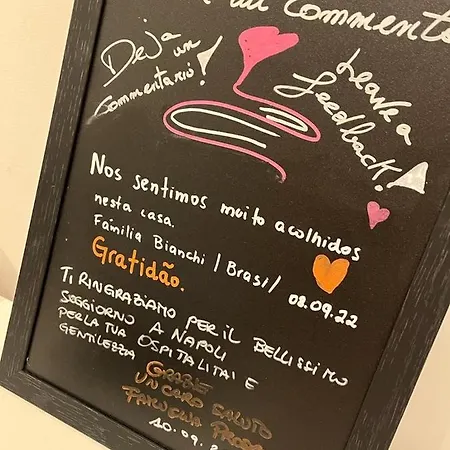 un commento
Deja
un
commentario!
Leave a
feedback!
Nos sentimos muito acolhidos
nesta casa.
Familia Bianchi / Brasil /
Gratidão.
08.09.22
TI RINGRAZIAMO PER IL BELLISSIMO
SOGGIORNO A NAPOLI
PER LA TUA OSPITALITAI E
GENTILEZZA
GRAZIE
UN CARO SALUTO
FAMIGLIA
10.09.2